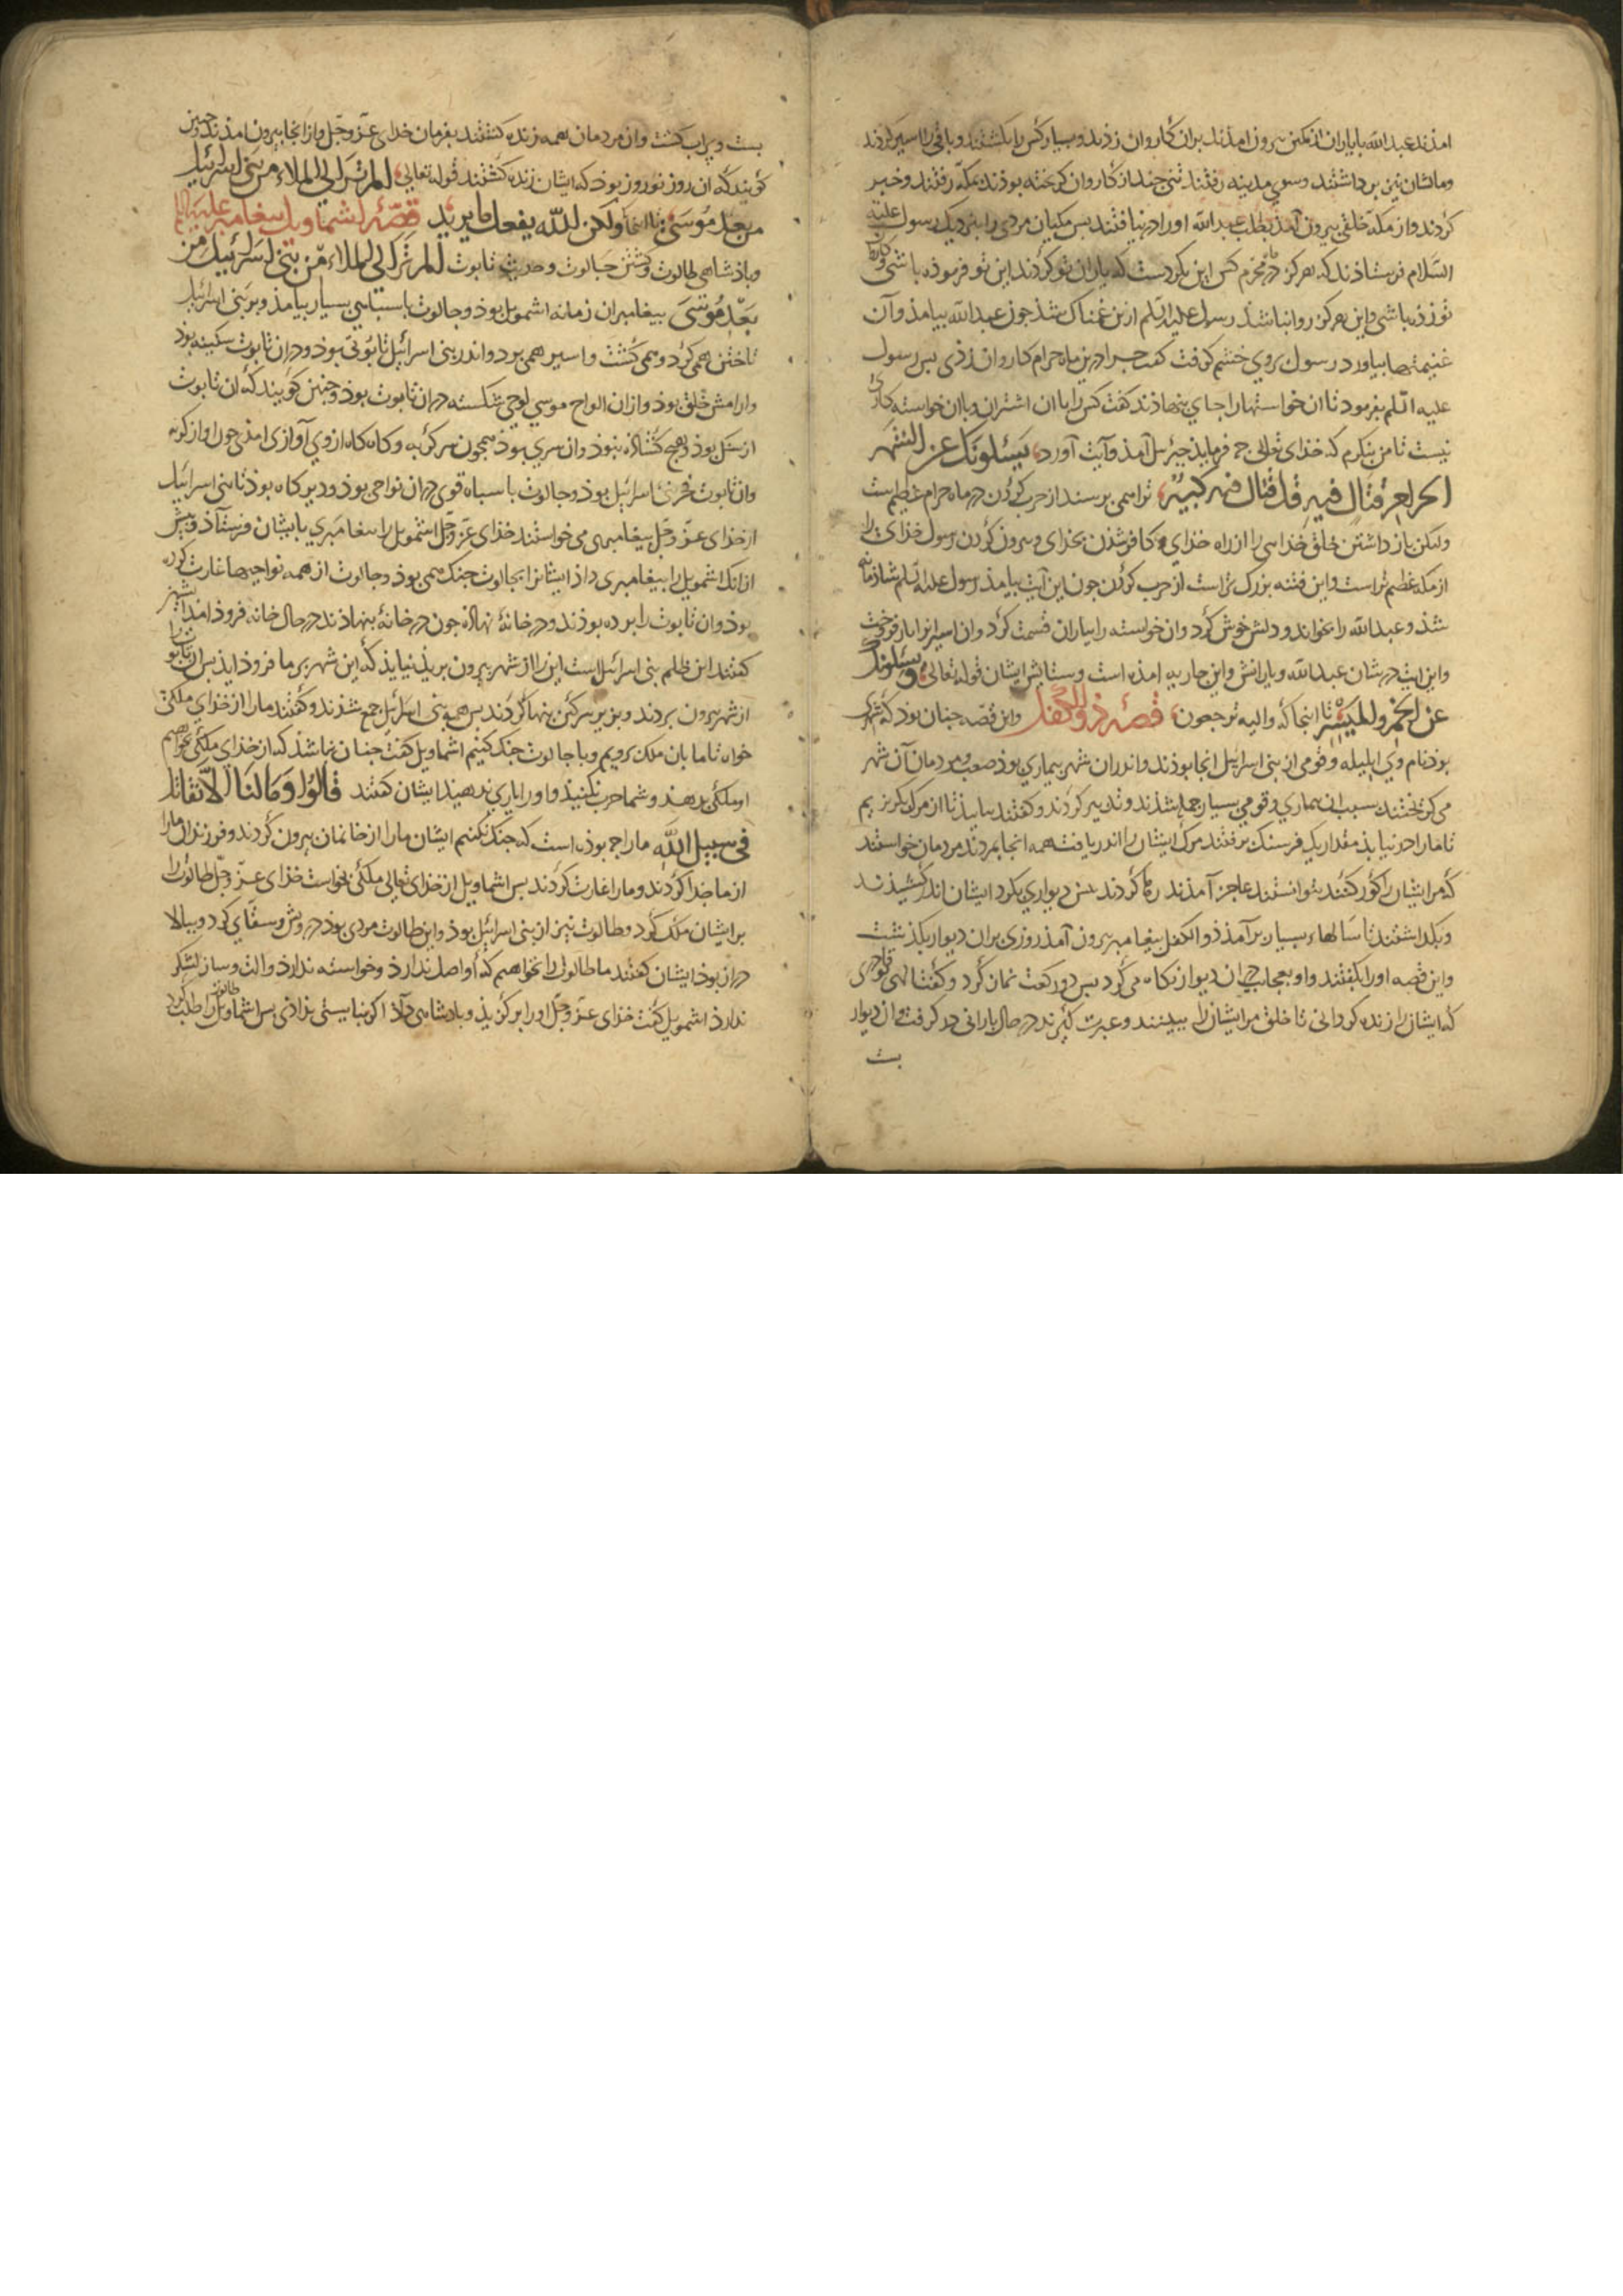 امذند عبدالله با یاران از کمین بیرون امذند بران کاروان زذند و بسیار کس را بکشتند و باقی را اسیر کردند
و مالشان بر داشتند و سوی مدینه رفتند تنی جند از کاروان کریخته بوذند بمکه رفتند و خبر
کردند و از مکه خلقی بیرون آمذ بطلب عبدالله او را در نیافتند بس مکیان مردی را بنزدیک رسول علیه
السلام فرستاذند که هرکز در ماه محرم کس این نکردست که یاران تو کردند این تو فرموذه باشی و کار
توذه باشی و این هرکز روا نباشذ رسول علیه السلم ازین غمناک شذ جون عبدالله بیامذ و آن
غنیمتها بیاورد رسول بروی خشم کرفت کفت جرا درین ماه حرام کاروان زذی بس رسول
علیه السلم بفرمود تا ان خواستها را جای بنهاذند کفت کس را با ان اشتران و با ان خواسته کاری
نیست تا من بنکرم که خذای تعالی جه فرمایذ جبرئیل آمذ و آیت آورد یسئلونک عن الشهر
الحرام قتال فیه قل قتال فیه کبیر ترا همی برسند از حرب کردن در ماه حرام عظیم است
ولکن باز داشتن خلق خدای را از راه خذای و کافر شذن بخذای و بیرون کردن رسول خذای را
از مکه عظیم تر است و این فتنه بزرک تر است از حرب کردن جون این آیت بیامذ رسول علیه السلم شاذمانه
شذ و عبدالله را بخواند و دلش خوش کرد و ان خواسته را بیاران قسمت کرد و ان اسیرانرا باز فروخت
و این ایت در شان عبدالله و یارانش و این حرب امذه است و ستایش ایشان قوله تعالی ویسئلونک
عن الخمر والمیسر تا انجا که و الیه ترجعون قصهٔ ذوالکفل و این قصه جنان بوذ که شهری
بوذ نام وی ایلیله و قومی از بنی اسرائیل انجا بوذند و اندران شهر بیماری بوذ صعب و مردمان آن شهر
می کریختند بسبب ان بیماری و قومی بسیار جمله شذند و تدبیر کردند و کفتند بیایید تا از مرک بکریزیم
تا ما را در نیابذ مقدار یک فرسنک برفتند مرک ایشان را اندر یافت همه انجا بمردند مردمان خواستند
که مر ایشان را کور کنند نتوانستند عاجز آمذند رها کردند بس دیواری بکرد ایشان اندر کشیذند
و بکذاشتند تا سالهاء بسیار بر آمذ ذوالکفل بیغامبر بیرون آمذ روزی بران دیوار بکذشت
و این قصه او را بکفتند و او بعجایب دران دیوار نکاه می کرد بس دو رکعت نماز کرد و کفت الهی تو قادری
که ایشان را زنده کردانی تا خلق مر ایشان را ببینند و عبرت کیرند در حال بارانی در کرفت و ان دیوار
بست و براب کشت و ان مردمان همه زنده کشتند بفرمان خذای عز و جل و از انجا بیرون امذند و جنین
کویند که ان روز نوروز بوذ که ایشان زنده کشتند قوله تعالی الم تر الی الملاء من بنی اسرائیل
من بعد موسی تا انجا ولکن الله یفعل ما یرید قصهٔ اشماویل بیغامبر علیه السلام
و باذشاهی طالوت و کشتن جالوت و حدیث تابوت الم تر الی الملاء من بنی اسرائیل من
بعد موسی بیغامبران زمانه اشمویل بوذ و جالوت با سباهی بسیار بیامذ و بر بنی اسرائیل
تاختن همی کرد و همی کشت و اسیر همی برد و اندر بنی اسرائیل تابوتی بوذ و دران تابوت سکینه بوذ
و ارامش خلق بوذ و ازان الواح موسی لوحی شکسته دران تابوت بوذ و جنین کویند که ان تابوت
از سنک بوذ و هیج کشاده نبوذ و ان سری بوذ همجون سر کربه و کاه کاه ازوی آوازی امذی جون اواز کربه
و ان تابوت فر بنی اسرائیل بوذ و جالوت با سباه قوی دران نواحی بوذ و دیر کاه بوذ تا بنی اسرائیل
از خذای عز و جل بیغامبری می خواستند خذای عز و جل اشمویل را ببیغامبری بایشان فرستاذ و بیش
از انک اشمویل را بیغامبری داذ ایشانرا بجالوت جنک همی بوذ و جالوت از همه نواحیها غارت کرده
بوذ و ان تابوت را برده بوذند و در خانهٔ نهاده جون در خانهٔ بنهاذند در حال خانه فرود امد
کفتند این طلسم بنی اسرائیل است این را از شهر بیرون بریذ نبایذ که این شهر بر ما فروذ ایذ بس ان تابوت را
از شهر بیرون بردند و بزیر سرکین بنها کردند بس همه بنی اسرائیل جمع شذند و کفتند ما را از خذای ملکی
خواه تا ما با ان ملک رویم و با جالوت جنک کنیم اشماویل کفت جنان نباشذ که از خذای ملکی خواهیم
او ملکی بدهذ و شما حرب نکنیذ و او را یاری ندهید ایشان کفتند قالوا وما لنا الا نقاتل
فی سبیل الله ما را جه بوذه است که جنک نکنیم ایشان ما را از خانمان بیرون کردند و فرزندان ما را
از ما جدا کردند و ما را غارت کردند بس اشماویل از خذای تعالی ملکی بخواست خذای عز و جل طالوت را
بر ایشان ملک کرد و طالوت نیز از بنی اسرائیل بوذ و این طالوت مردی بوذ درویش و سقایی کرد و ببالا
دراز بوذ ایشان کفتند ما طالوت را نخواهیم که او اصل ندارذ و خواسته ندارذ و الت و ساز لشکر
ندارذ اشمویل کفت خذای عز و جل او را برکزیذ و باذشاهی داذ اکر نبایستی نداذی بس اشماویل طالوت را طلب کرد